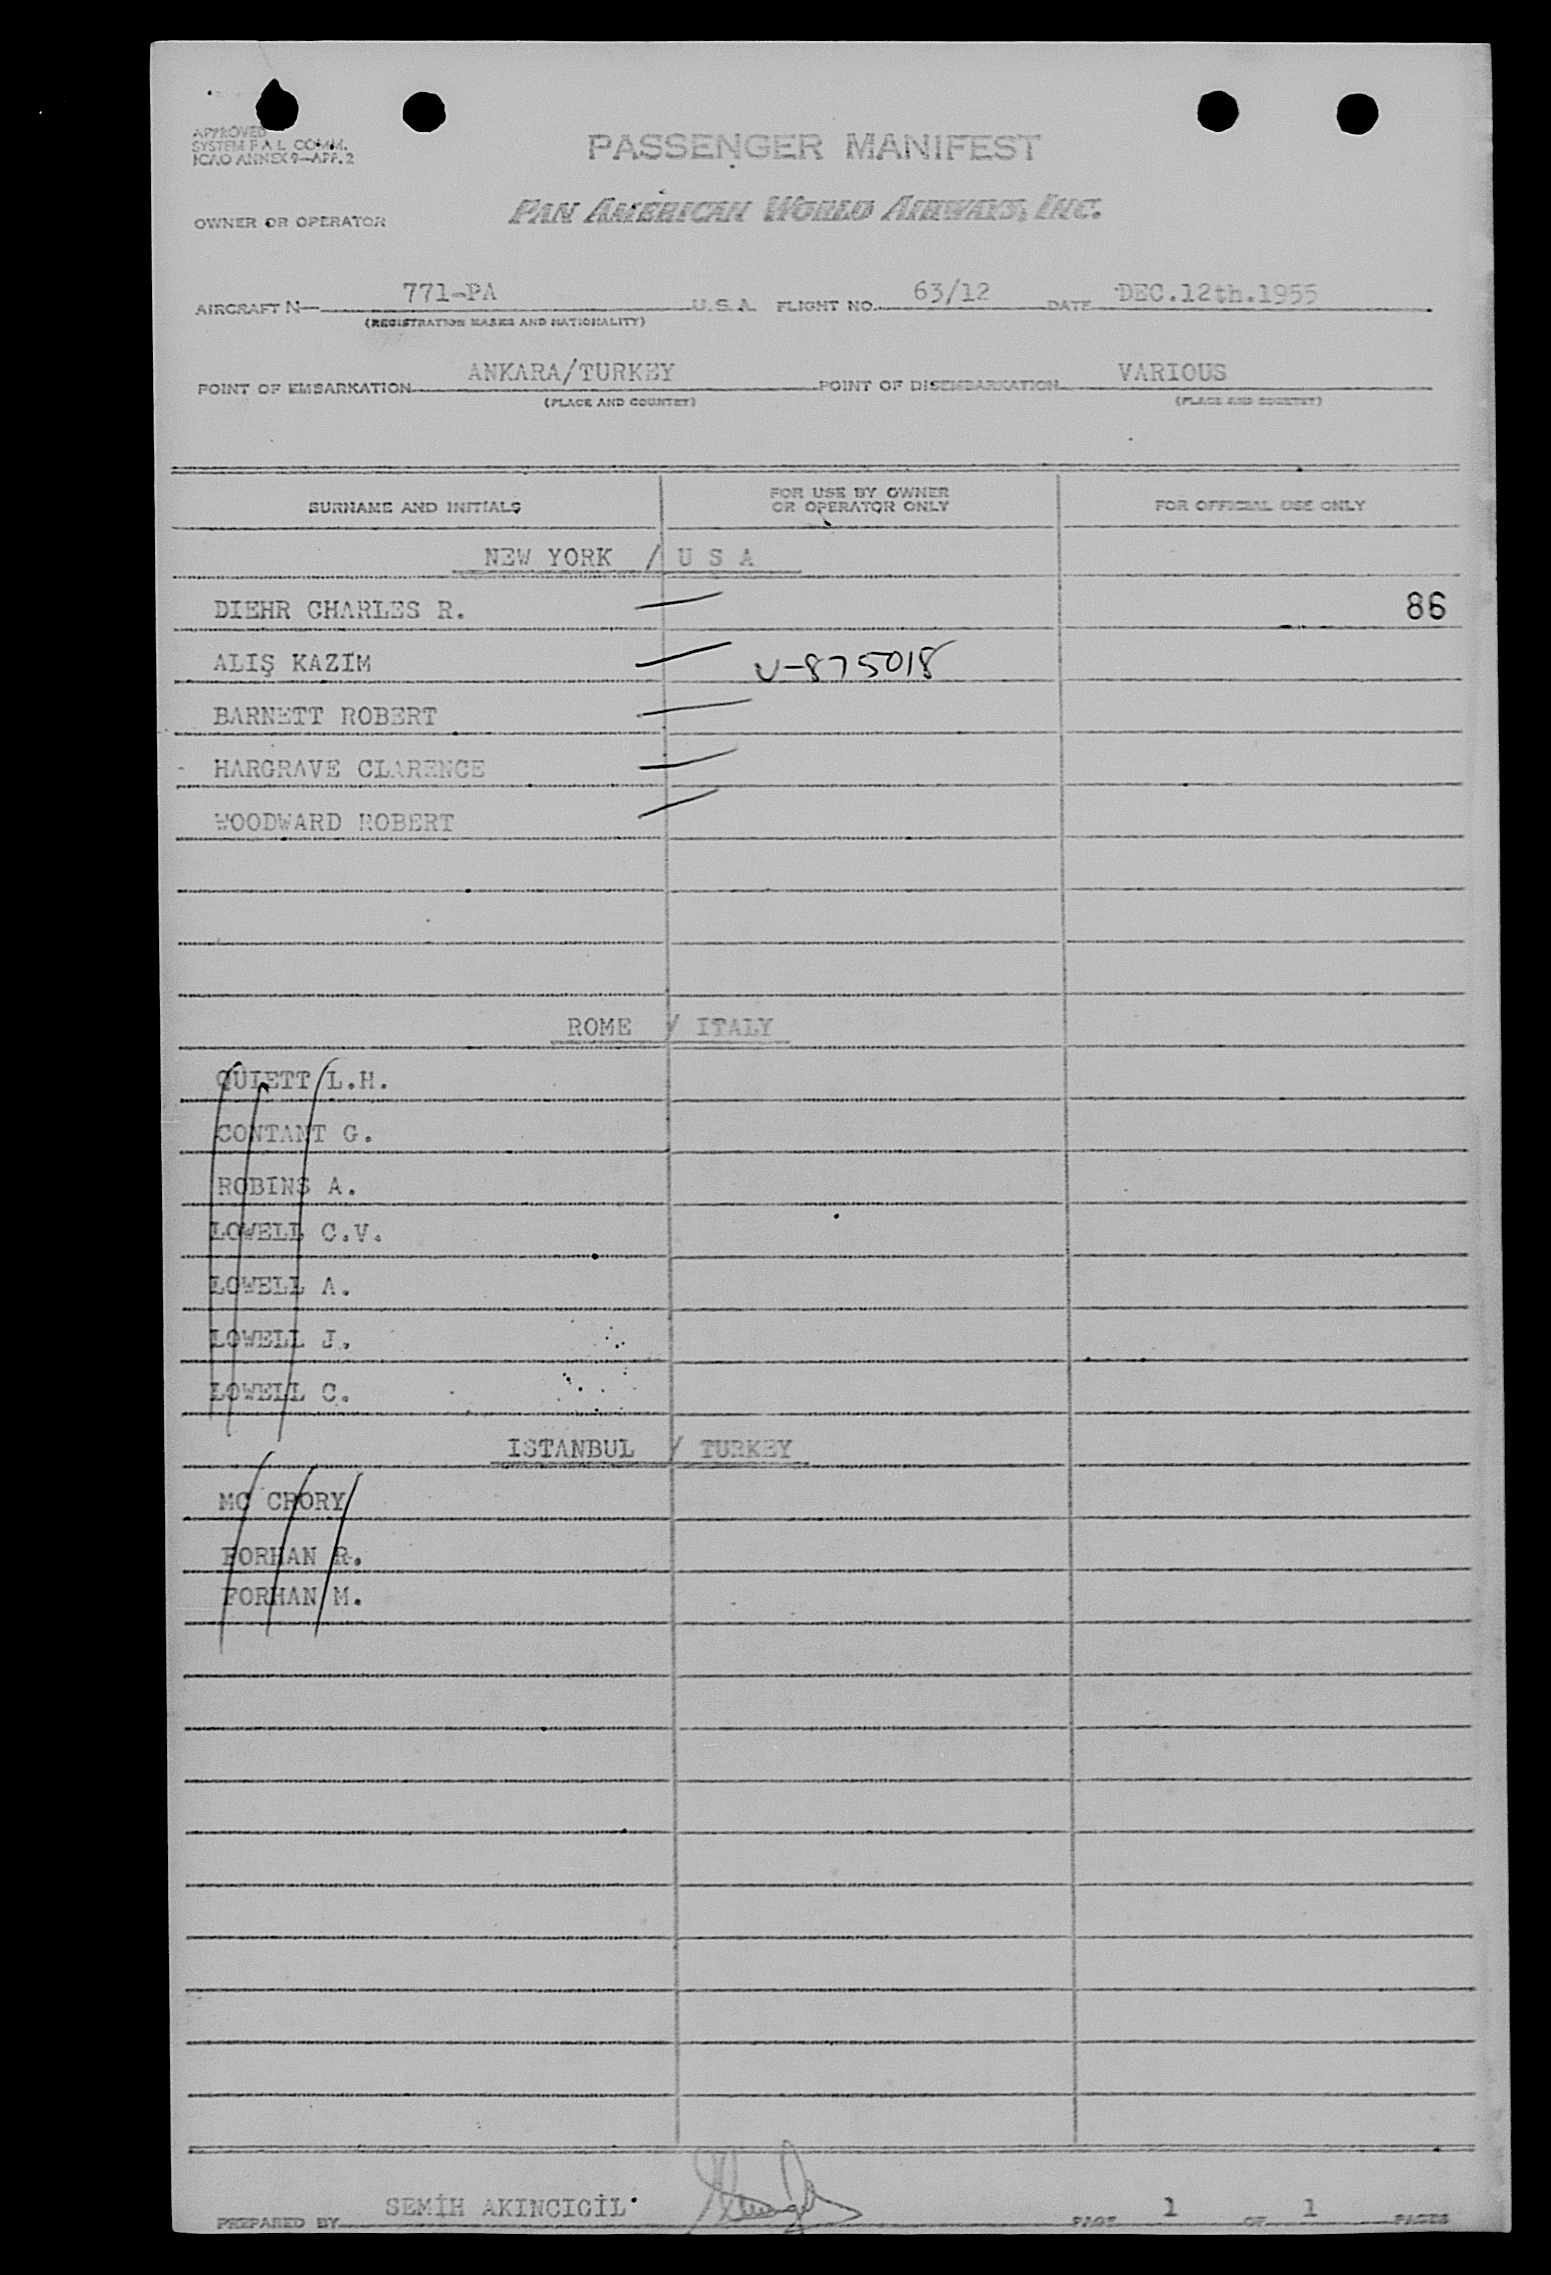 APPROVED
SYSTEM F A L COMM.
ICAO ANNEX 9—APP. 2
PASSENGER MANIFEST
OWNER OR OPERATOR PAN AMERICAN WORLD AIRWAYS, INC.
AIRCRAFT N— 771-PA U.S.A. FLIGHT NO. 63/12 DATE DEC.12th.1955
(REGISTRATION MARKS AND NATIONALITY)
POINT OF EMBARKATION ANKARA/TURKEY POINT OF DISEMBARKATION VARIOUS
(PLACE AND COUNTRY) (PLACE AND COUNTRY)
SURNAME AND INITIALS FOR USE BY OWNER OR OPERATOR ONLY FOR OFFICIAL USE ONLY
NEW YORK / U S A
DIEHR CHARLES R. 86
ALIŞ KAZİM V-875018
BARNETT ROBERT
HARGRAVE CLARENCE
WOODWARD ROBERT
ROME / ITALY
QUIETT L.H.
CONTANT G.
ROBINS A.
LOWELL C.V.
LOWELL A.
LOWELL J.
LOWELL C.
ISTANBUL / TURKEY
MC CRORY
FORHAN R.
FORHAN M.
PREPARED BY SEMİH AKINCIGİL PAGE 1 OF 1 PAGES